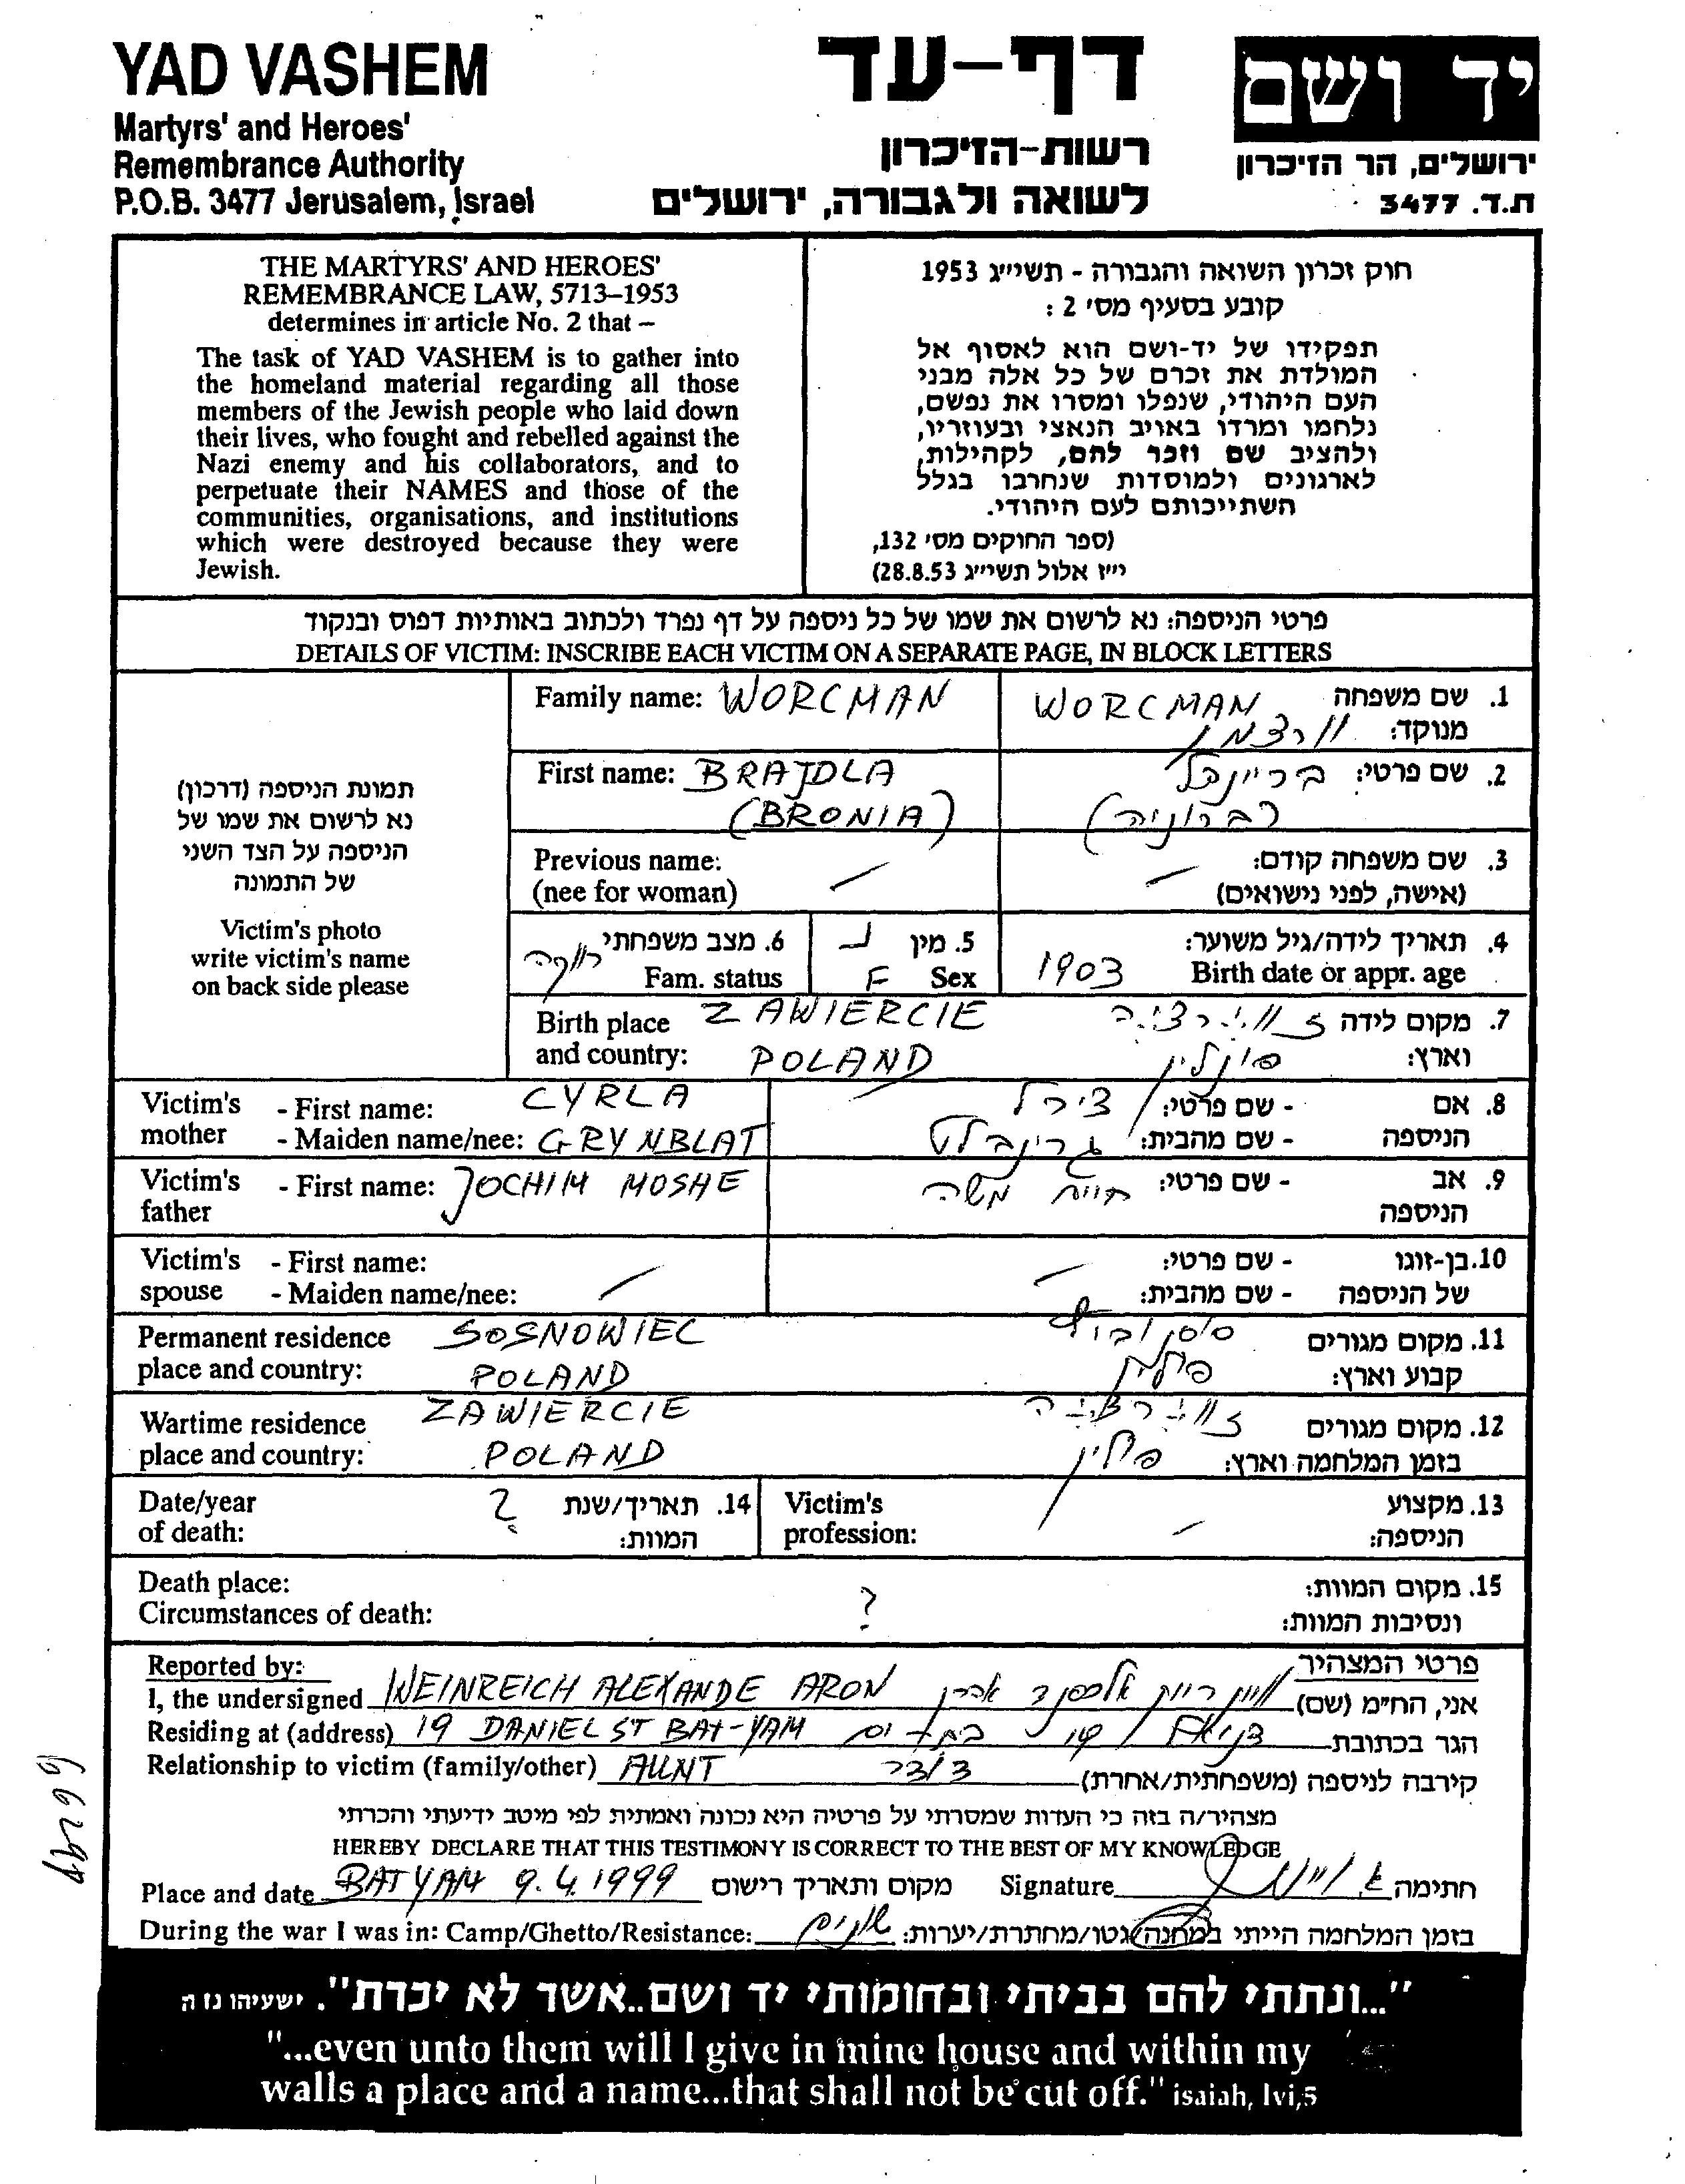 YAD VASHEM
Martyrs' and Heroes'
Remembrance Authority
P.O.B. 3477 Jerusalem, Israel
דף-עד
רשות-הזיכרון
לשואה ולגבורה, ירושלים
יד ושם
ירושלים, הר הזיכרון
ת.ד. 3477
THE MARTYRS' AND HEROES'
REMEMBRANCE LAW, 5713–1953
determines in article No. 2 that –
The task of YAD VASHEM is to gather into
the homeland material regarding all those
members of the Jewish people who laid down
their lives, who fought and rebelled against the
Nazi enemy and his collaborators, and to
perpetuate their NAMES and those of the
communities, organisations, and institutions
which were destroyed because they were
Jewish.
חוק זכרון השואה והגבורה - תשי״ג 1953
קובע בסעיף מס׳ 2 :
תפקידו של יד-ושם הוא לאסוף אל
המולדת את זכרם של כל אלה מבני
העם היהודי, שנפלו ומסרו את נפשם,
נלחמו ומרדו באויב הנאצי ובעוזריו,
ולהציב שם וזכר להם, לקהילות,
לארגונים ולמוסדות שנחרבו בגלל
השתייכותם לעם היהודי.
(ספר החוקים מס׳ 132,
י״ז אלול תשי״ג 28.8.53)
פרטי הניספה: נא לרשום את שמו של כל ניספה על דף נפרד ולכתוב באותיות דפוס ובנקוד
DETAILS OF VICTIM: INSCRIBE EACH VICTIM ON A SEPARATE PAGE, IN BLOCK LETTERS
תמונת הניספה (דרכון)
נא לרשום את שמו של
הניספה על הצד השני
של התמונה
Victim's photo
write victim's name
on back side please
Family name: WORCMAN
1. שם משפחה WORCMAN
מנוקד: וורצמן
First name: BRAJDLA
(BRONIA)
2. שם פרטי: בריינדל
(ברוניה)
Previous name: –
(nee for woman)
3. שם משפחה קודם: –
(אישה, לפני נישואים)
6. מצב משפחתי רווקה
Fam. status
5. מין נ
Sex F
4. תאריך לידה/גיל משוער:
Birth date or appr. age 1903
Birth place ZAWIERCIE
and country: POLAND
7. מקום לידה זווירציה
וארץ: פולין
Victim's - First name: CYRLA
mother - Maiden name/nee: GRYNBLAT
8. אם - שם פרטי: צירל
הניספה - שם מהבית: גרינבלט
Victim's - First name: JOCHIM MOSHE
father
9. אב - שם פרטי: חיים משה
הניספה
Victim's - First name:
spouse - Maiden name/nee: –
10. בן-זוגו - שם פרטי: –
של הניספה - שם מהבית:
Permanent residence SOSNOWIEC
place and country: POLAND
11. מקום מגורים
קבוע וארץ: פולין
Wartime residence ZAWIERCIE
place and country: POLAND
12. מקום מגורים זווירציה
בזמן המלחמה וארץ: פולין
Date/year
of death:
14. תאריך/שנת ?
המוות:
Victim's
profession:
13. מקצוע
הניספה: –
Death place:
Circumstances of death: ?
15. מקום המוות:
ונסיבות המוות:
Reported by:
פרטי המצהיר
I, the undersigned WEINREICH ALEXANDE ARON
אני, הח״מ (שם) וויינרייך אלכסנד אהרן
Residing at (address) 19 DANIEL ST BAT-YAM
הגר בכתובת דניאל 19 בת-ים
Relationship to victim (family/other) AUNT
קירבה לניספה (משפחתית/אחרת) דודה
מצהיר/ה בזה כי העדות שמסרתי על פרטיה היא נכונה ואמתית לפי מיטב ידיעתי והכרתי
HEREBY DECLARE THAT THIS TESTIMONY IS CORRECT TO THE BEST OF MY KNOWLEDGE
Place and date BAT YAM 9.4.1999 מקום ותאריך רישום
Signature חתימה
During the war I was in: Camp/Ghetto/Resistance:
בזמן המלחמה הייתי במחנה/גטו/מחתרת/יערות:
"...ונתתי להם בביתי ובחומותי יד ושם..אשר לא יכרת". ישעיהו נו ה
"...even unto them will I give in mine house and within my
walls a place and a name...that shall not be cut off." isaiah, lvi,5